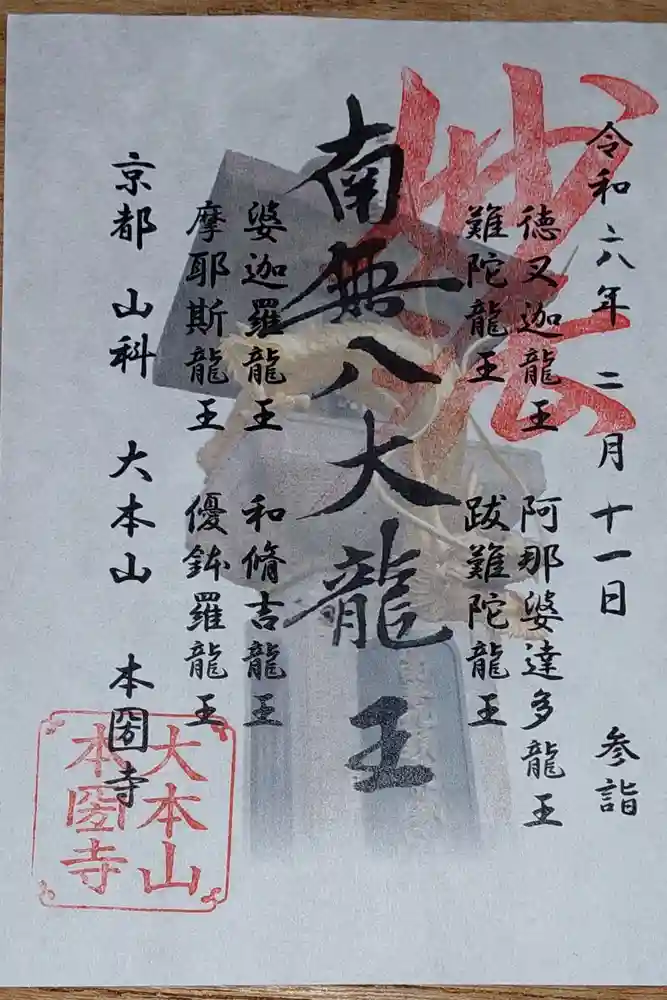 令和六年 二月 十一日 参詣
徳叉迦龍王 阿那婆達多龍王
難陀龍王 跋難陀龍王
妙法
南無八大龍王
婆迦羅龍王 和脩吉龍王
摩耶斯龍王 優鉢羅龍王
京都 山科 大本山 本圀寺
大本山
本圀寺